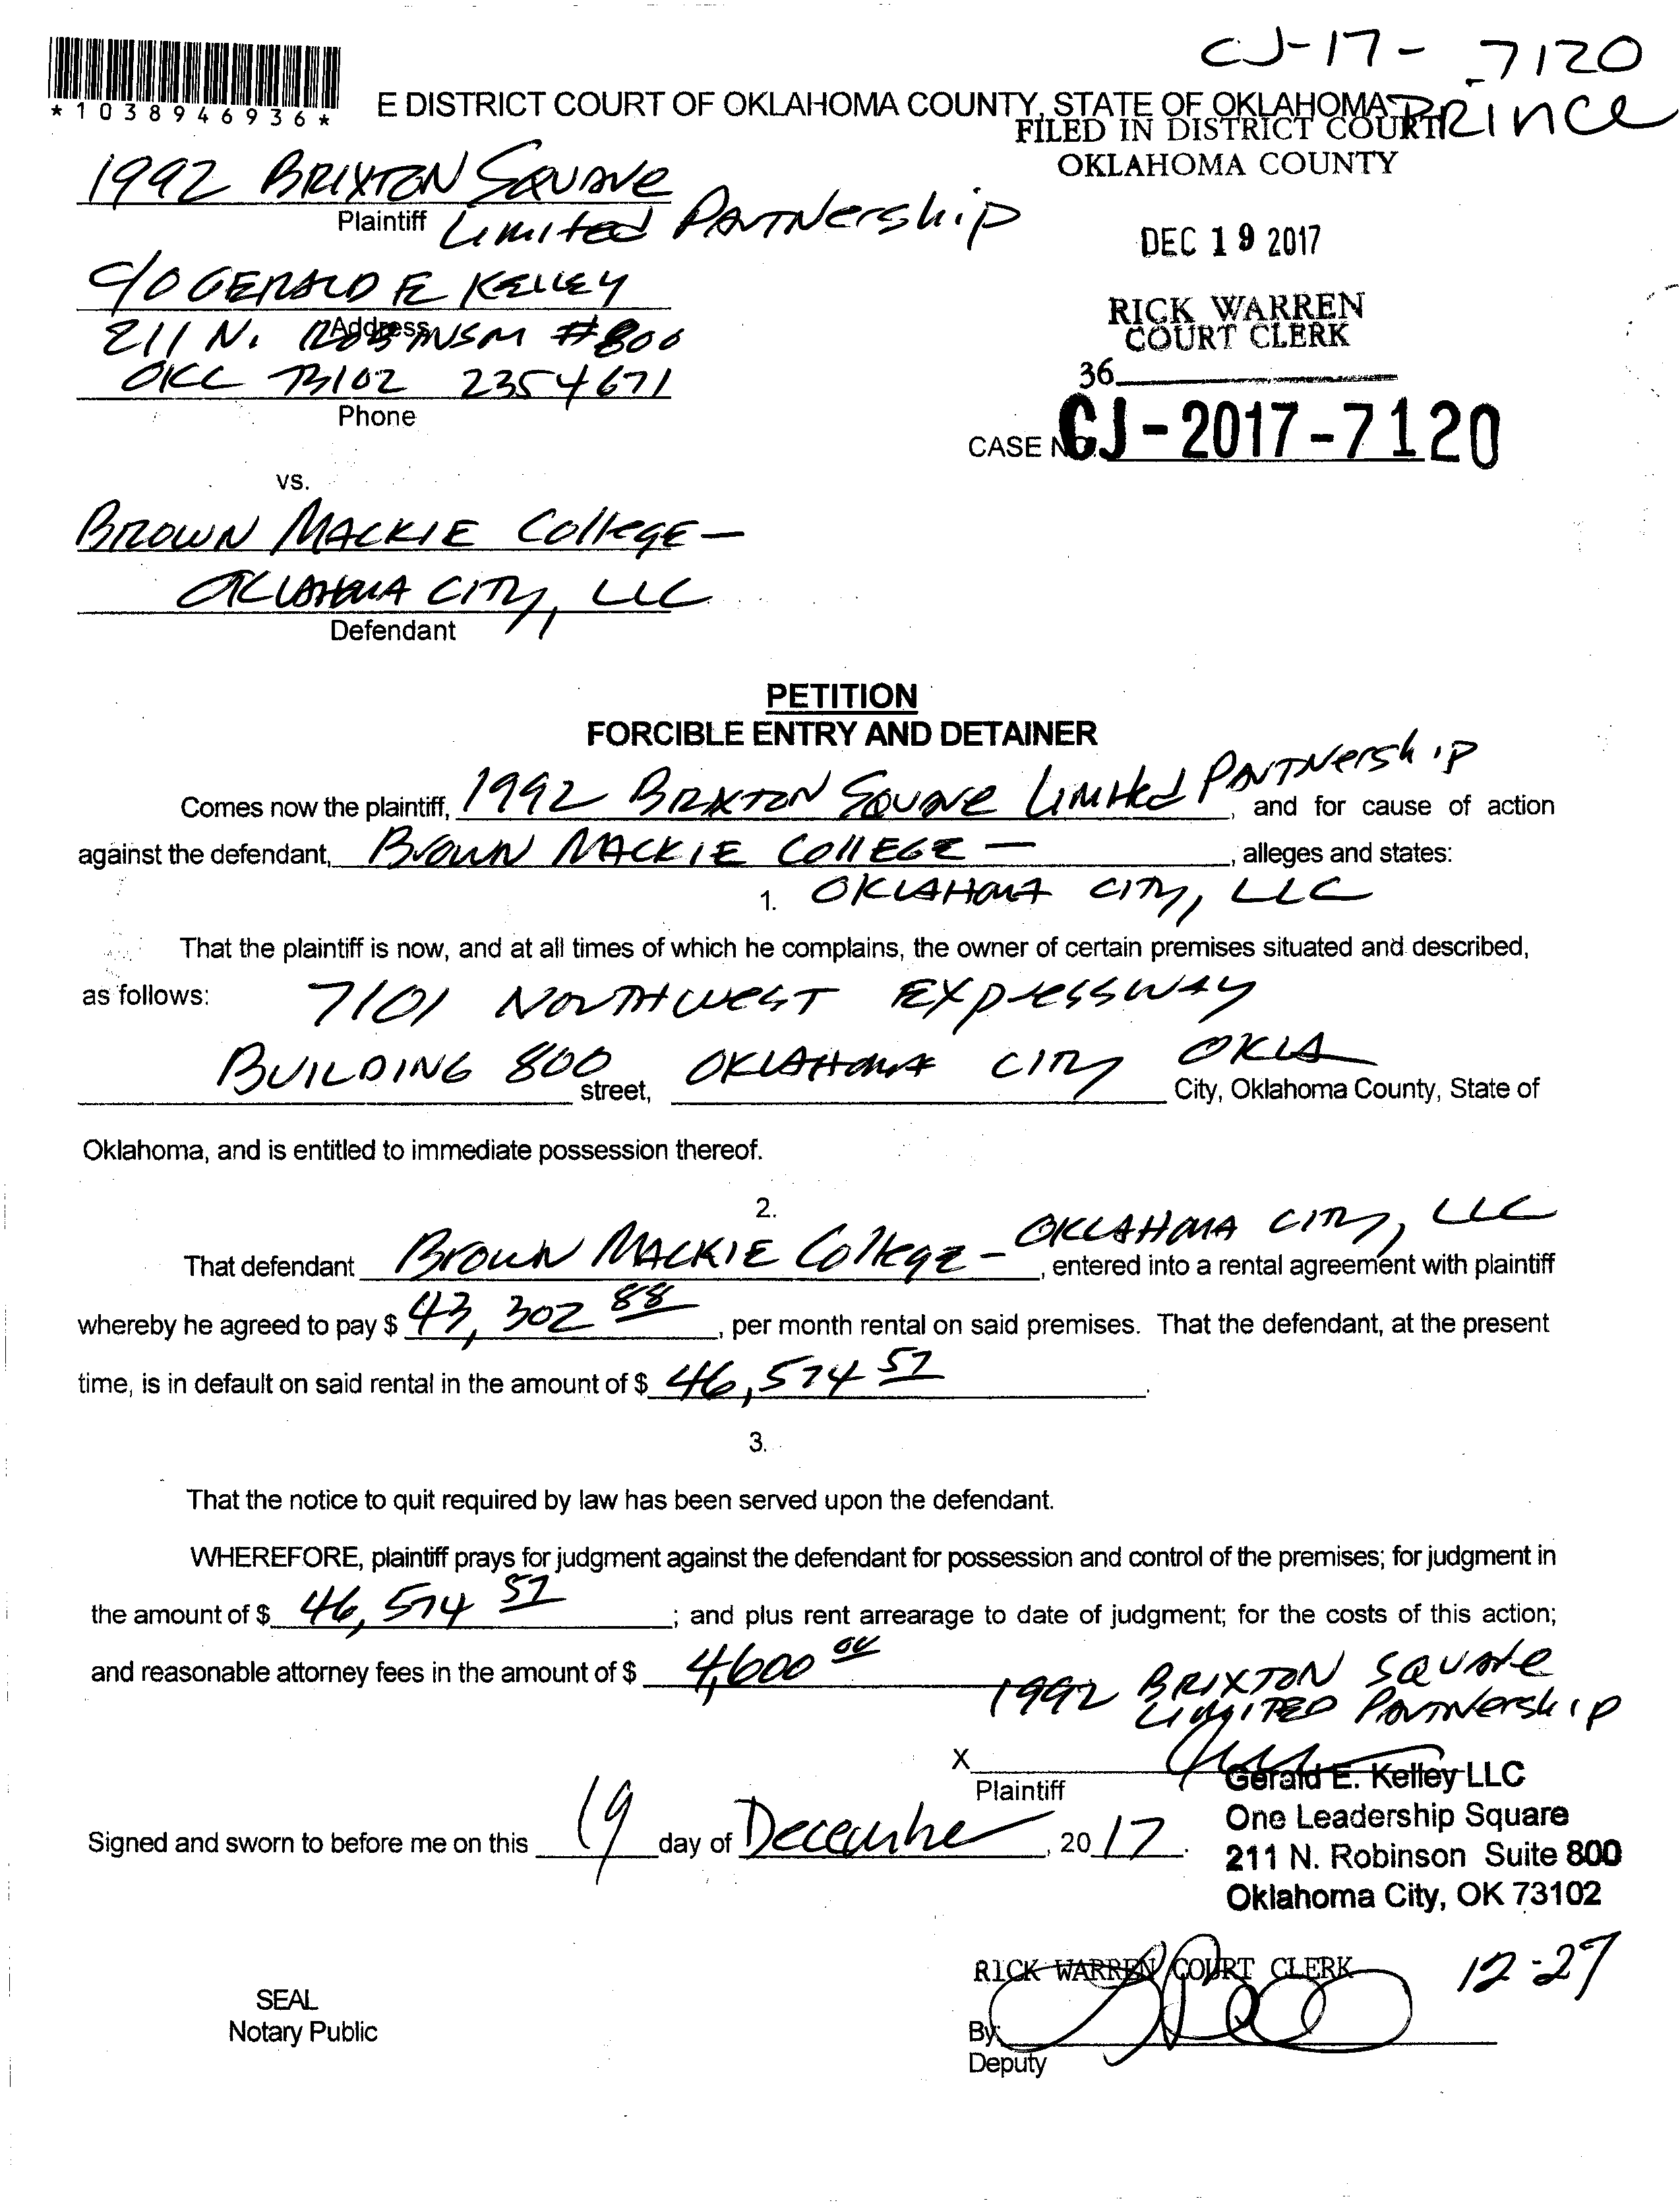 CJ-17-7120
PRince
*1038946936*
E DISTRICT COURT OF OKLAHOMA COUNTY, STATE OF OKLAHOMA
FILED IN DISTRICT COURT
OKLAHOMA COUNTY
1992 BRIXTON SQUARE
Plaintiff Limited PARTNership
DEC 19 2017
C/O GERALD E KELLEY
RICK WARREN
COURT CLERK
Address
211 N. ROBINSON #800
OKC 73102 2354671
Phone
36
CASE NO. CJ-2017-7120
vs.
BROWN MACKIE College-
OKLAHOMA CITY, LLC
Defendant
PETITION
FORCIBLE ENTRY AND DETAINER
Comes now the plaintiff, 1992 BRIXTON SQUARE LIMited PARTNership, and for cause of action
against the defendant, BROWN MACKIE CollEGE -, alleges and states:
1. OKLAHOMA CITY, LLC
That the plaintiff is now, and at all times of which he complains, the owner of certain premises situated and described,
as follows: 7101 NORTHWEST EXpressWAY
BUILDING 800 street, OKLAHOMA CITY OKLA City, Oklahoma County, State of
Oklahoma, and is entitled to immediate possession thereof.
2.
That defendant Brown MACKIE College - OKLAHOMA CITY, LLC, entered into a rental agreement with plaintiff
whereby he agreed to pay $ 43,302 88, per month rental on said premises. That the defendant, at the present
time, is in default on said rental in the amount of $ 46,574 57.
3.
That the notice to quit required by law has been served upon the defendant.
WHEREFORE, plaintiff prays for judgment against the defendant for possession and control of the premises; for judgment in
the amount of $ 46,574 57; and plus rent arrearage to date of judgment; for the costs of this action;
and reasonable attorney fees in the amount of $ 4,600 00
1992 BRIXTON SQUARE
LIMITED PARTNership
X
Plaintiff
Gerald E. Kelley LLC
One Leadership Square
211 N. Robinson Suite 800
Oklahoma City, OK 73102
Signed and sworn to before me on this 19 day of December, 2017.
RICK WARREN COURT CLERK 12-27
SEAL
Notary Public
By:
Deputy